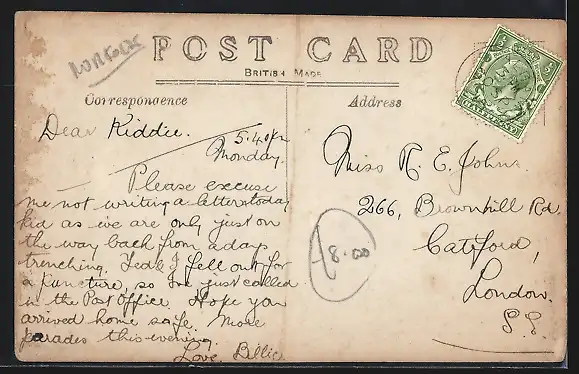 NORFOLK
POST CARD
BRITISH MADE
Correspondence
Address
Dear Kiddie.
5.40pm
Monday.
Please excuse
me not writing a letter today
kid as we are only just on
the way back from a days
trenching. Ted & I fell out for
a puncture, so we just called
in the Post Office. Hope you
arrived home safe. More
parades this evening.
Love. Billie.
Miss R. E. Johns.
266, Brownhill Rd.
Catford,
London.
S.E.
8.00